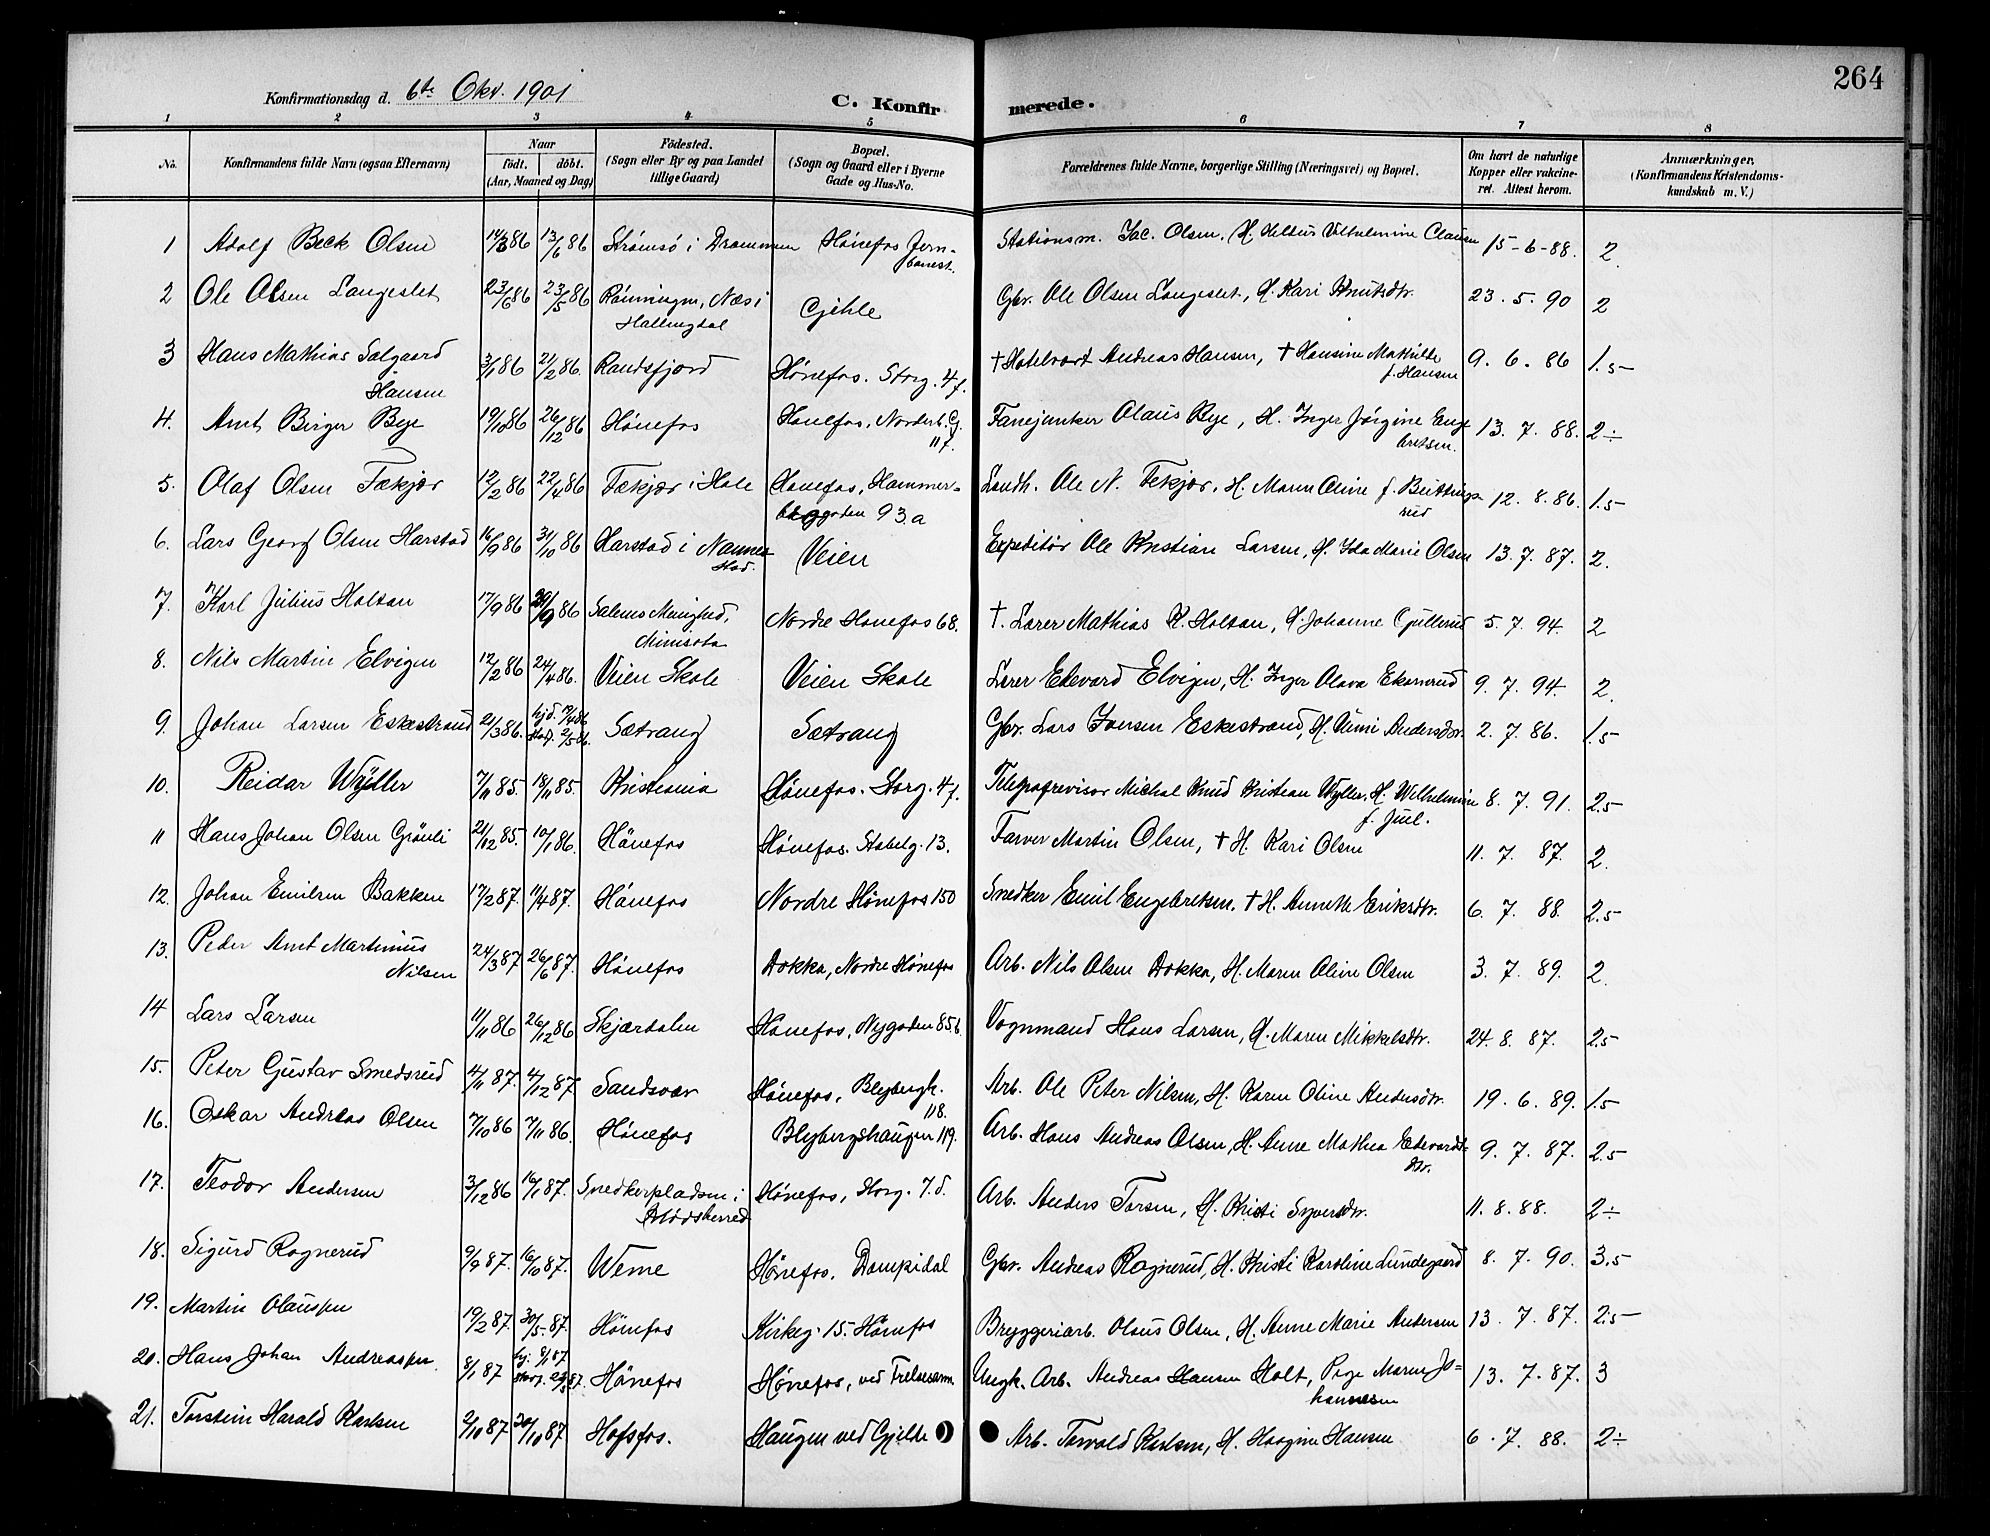 264
Konfirmationsdag d. 6te Okt. 1901
C. Konfirmerede.
1 2 3 4 5 6 7 8
No. Konfirmandens fulde Navn (ogsaa Efternavn) Naar født. døbt. (Aar, Maaned og Dag) Fødested. (Sogn eller By og paa Landet tillige Gaard) Bopæl. (Sogn og Gaard eller i Byerne Gade og Hus-No. Forældrenes fulde Navne, borgerlige Stilling (Næringsvei) og Bopæl. Om havt de naturlige Kopper eller vakcineret. Attest herom. Anmærkninger, (Konfirmandens Kristendomskundskab m. V.)
1 Adolf Beck Olsen 14/3 86 13/6 86 Strømsø i Drammen Hønefos Jernbanest. Stationsm. Jac. Olsen, H. Vilhelmine Clausen 15-6-88. 2.
2 Ole Olsen Langeslet 23/6 86 23/5 86 Rønningen, Næs i Hallingdal Gjehle Gbr. Ole Olsen Langeslet, H. Kari Knutsdtr. 23. 5. 90 2
3 Hans Mathias Solgaard Hansen 3/1 86 21/2 86. Randsfjord Hønefos. Storg. 4f. † Hotelvært Andreas Hansen, † Hansine Mathilde f. Hansen 9. 6. 86 1.5
4. Arnt Birger Bye 19/10 86 26/12 86 Hønefos Hønefos, Norderh. G. 117. Fanejunker Olaus Bye, H. Inger Jørgine Engebretsen. 13. 7. 88. 2÷
5. Olaf Olsen Fækjær 12/2 86 22/4 86 Fækjær i Hole Hønefos, Hammerbroggaden 93.a Landh. Ole N. Fekjær, H. Maren Oline f. Buttingsrud 12. 8. 86. 1.5
6. Lars Georg Olsen Harstad 16/9 86 31/10 86 Harstad i Nannestad. Veien Expeditør Ole Kristian Larsen, H. Ida Marie Olsen 13. 7. 87. 2.
7. Karl Julius Holtan 17/9 86 86 Salems Menighed, Minisota Nordre Hønefos 68. †. Lærer Mathias K. Holtan, H. Johanne Gullerud 5. 7. 94. 2
8. Nils Martin Elvigen 12/2 86 24/4 86. Veien Skole Veien Skole Lærer Edevard Elvigen, H. Inger Olava Ekornrud 9. 7. 94. 2.
9. Johan Larsen Eskestrand 21/3 86. hjd. 12/4 86 stadf. 2/5 86. Sætrang Sætrang Gbr. Lars Iversen Eskestrand, H. Anni Andersdtr. 2. 7. 86. 1.5
10. Reidar Wyller 7/11 85. 18/11 85. Kristiania Hønefos. Storg. 4f. Telegrafrevisor Michal Knud Kristian Wyller, H. Wilhelmine f. Juel. 8. 7. 91. 2.5
11 Hans Johan Olsen Grønli 21/12 85. 10/1 86. Hønefos Hønefos. Stabelg. 13. Farver Martin Olsen, † H. Kari Olsen 11. 7. 87. 2.
12. Johan Emilsen Bakken 17/2 87. 11/4 87. Hønefos Nordre Hønefos 150 Snedker Emil Engebretsen. † H. Annette Eriksdtr. 6. 7. 88. 2.5
13. Peder Arnt Martinius Nilsen 24/3 87 26/6 87. Hønefos Dokka, Nordre Hønefos Arb. Nils Olsen Dokka, H. Maren Oline Olsen 3. 7. 89. 2.
14 Lars Larsen 11/11 86 26/12 86 Skjærdalen Hønefos, Nygaden 85 b. Vognmand Hans Larsen, H. Maren Mikkelsdtr. 24. 8. 87. 2.5
15. Peter Gustav Smedsrud 4/11 87. 4/12 87 Sandsvær Hønefos, Blybergh. 118. Arb. Ole Peter Nilsen, H. Karen Oline Andersdtr. 19. 6. 89. 1.5
16. Oskar Andreas Olsen 7/10 86 7/11 86. Hønefos Blybergshaugen 119. Arb. Hans Andreas Olsen, H. Anne Mathea Edvardsdtr. 9. 7. 87. 2.5
17. Teodor Andersen 3/12 86 16/1 87. Snedkerpladsen i Modsherred Hønefos, Storg. 7.d. Arb. Anders Torsen, H. Kristi Syversdtr. 11. 8. 88. 2÷
18. Sigurd Rognerud 9/9 87. 16/10 87. Weme Hønefos, Dampidal Gbr. Andreas Rognerud, H. Kristi Karoline Lundegaard 8. 7. 90. 3.5
19. Martin Olaussen 19/2 87. 30/5 87. Hønefos Kirkeg. 15. Hønefos Bryggeriarb. Olaus Olsen, H. Anne Marie Andersen 13. 7. 87. 2.5
20. Hans Johan Andreassen 8/1 87 hj. 9/1 87. Hønefos Hønefos, ved Frelsesarm. Ungk. Arb. Andreas Hansen Holt, Pige Maren Johannesen 13. 7. 87. 3
21. Torstein Harald Karlsen 2/10 87 30/10 87 Hofsfos. Haugen ved Gjelde Arb. Torvald Karlsen, H. Haagine Hansen 6. 7. 88. 2÷